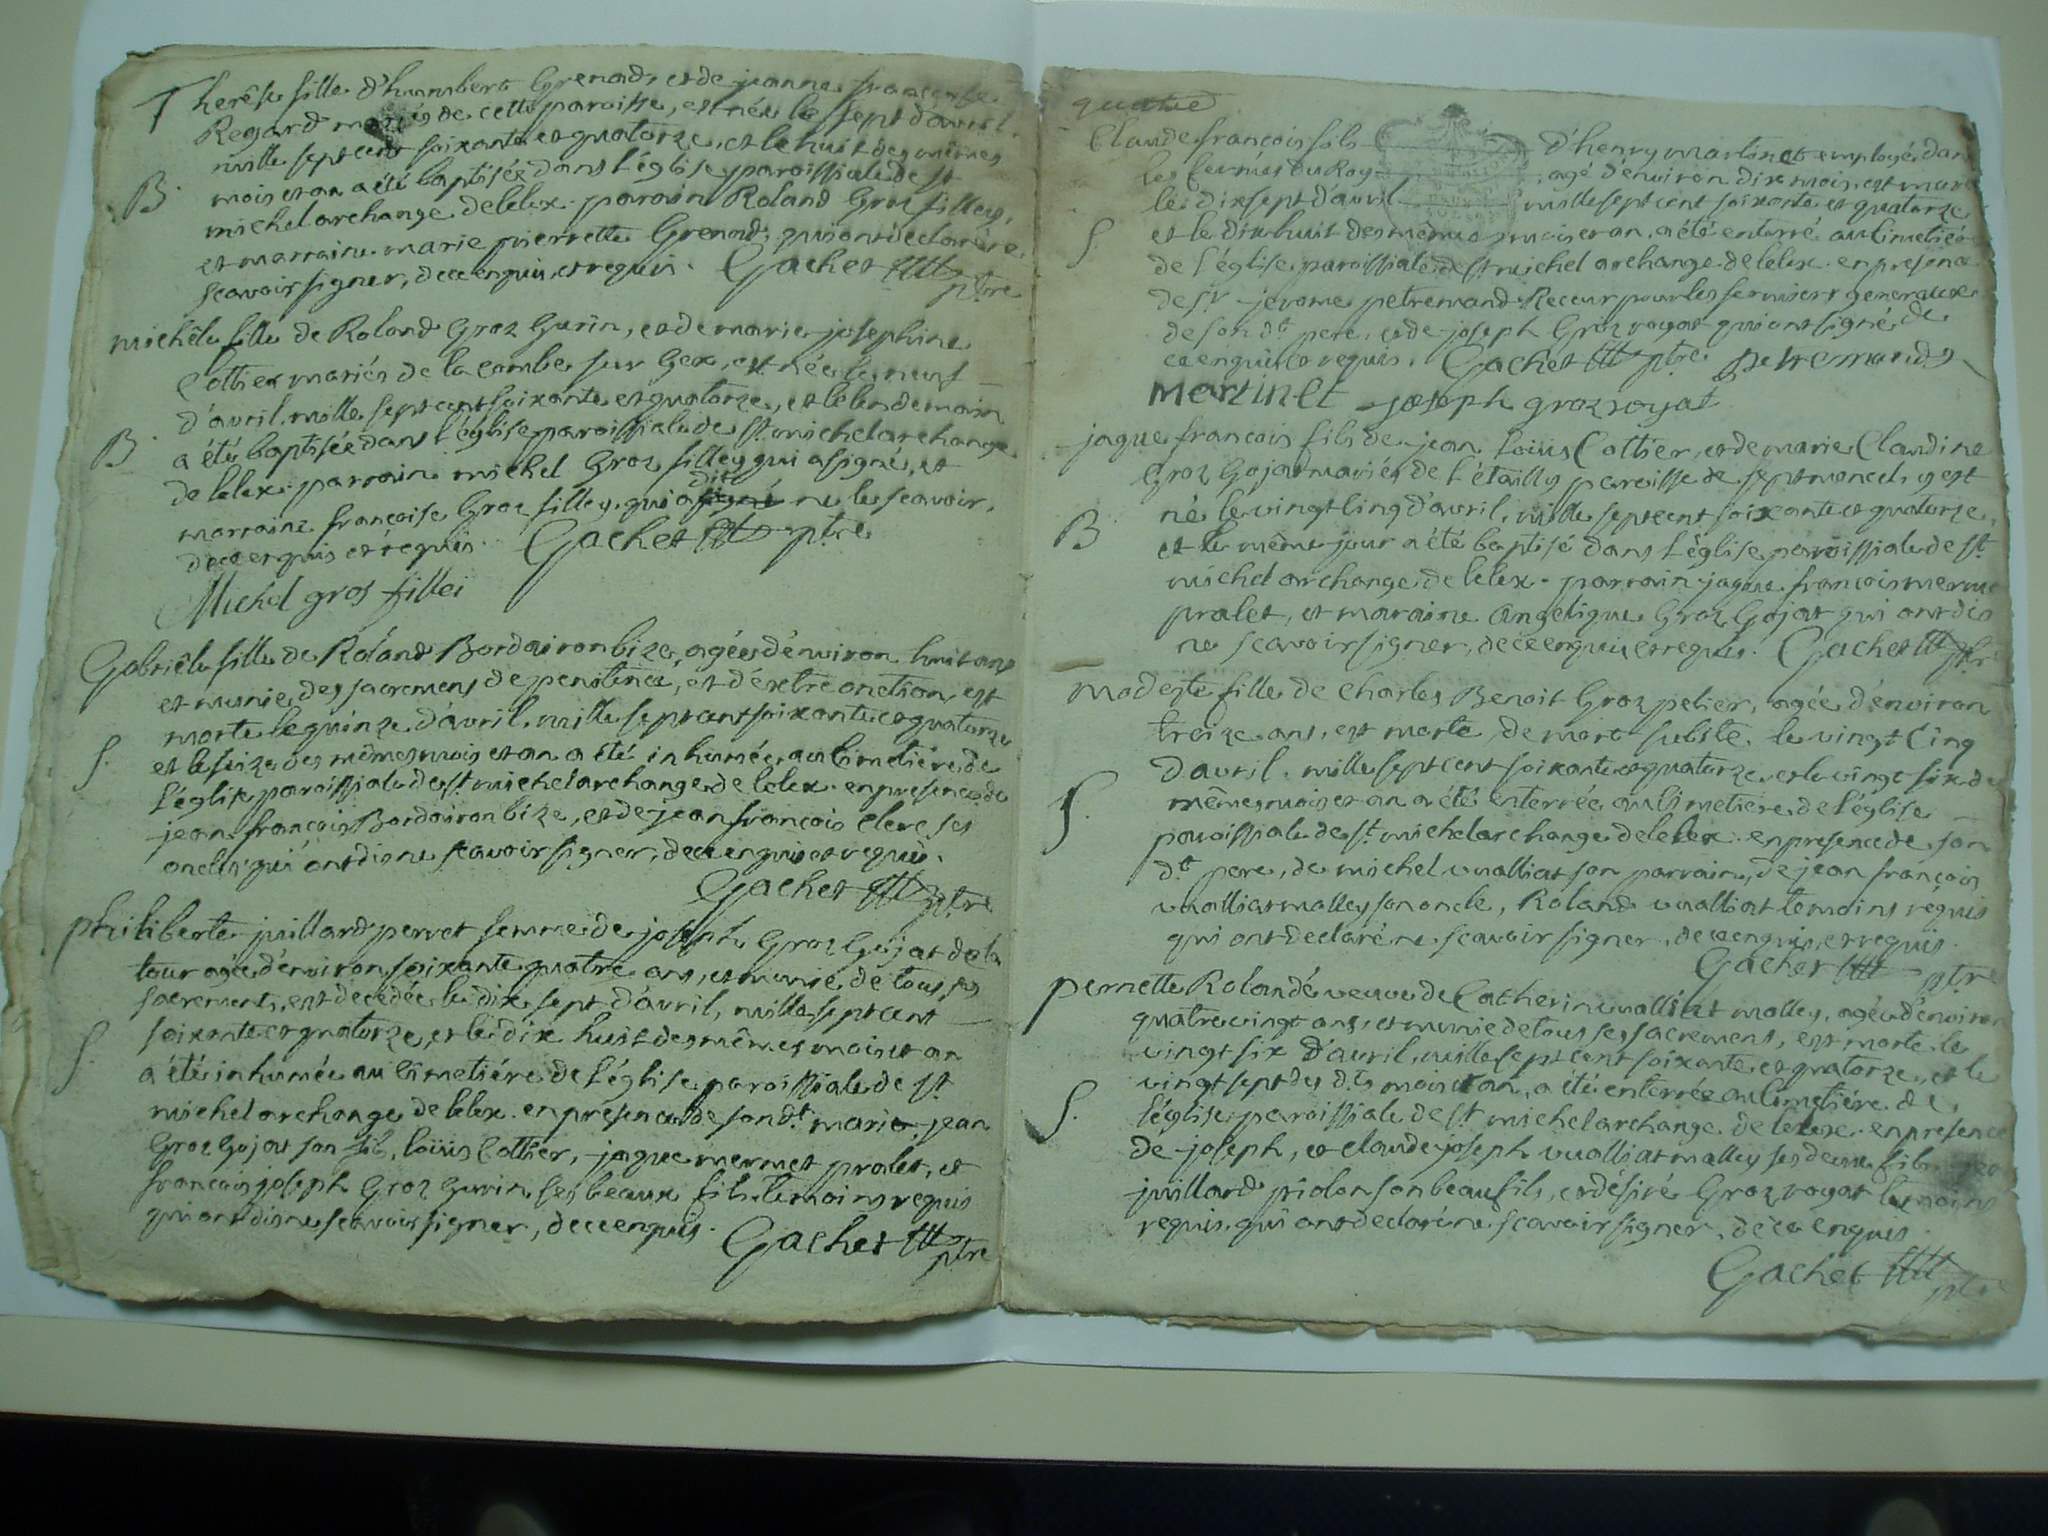 Therêse fille d'humbert Grenard, et de jeanne françoise
Regard mariés de cette paroisse, est née le sept d'avril
mille sept cent soixante et quatorze, et le huit des mêmes
mois et an a été baptisée dans l'église paroissiale de st
B.
michel archange de lelex. parain Roland Groz filley,
et marraine marie pierrette Grenard, qui ont declaré ne
scavoir signer, de ce enquis, et requis. Gachet ptre
michêle fille de Roland Groz Gurin, et de marie josephine
Cottier mariés de la combe sur Gex, est née le neuf
d'avril mille sept cent soixante et quatorze, et le lendemain
B.
a été baptisée dans l'église paroissiale de st. michel archange
de lelex. parrain michel Groz filley qui a signé, et
dit
marraine françoise Groz filley, qui a signé ne le scavoir,
de ce enquis et requis. Gachet ptre
Michel gros fillei
Gabriêle fille de Roland Bordairon bize, agée d'environ huit ans
et munie des sacremens de penitence, et d'extre onction est
morte le quinze d'avril, mille sept cent soixante et quatorze
S.
et le seize des mêmes mois et an a été inhumée au cimetiére de
l'église paroissiale de st. michel archange de lelex. en presence de
jean françois Bordairon bize, et de jean françois Clerc ses
oncles qui ont dis ne scavoir signer, de ce enquis et requis.
Gachet ptre
philiberte juillard pernet femme de joseph Groz Gojat de la
tour agée d'environ soixante quatre ans, et munie de tous ses
sacrements, est decedée le dix sept d'avril, mille sept cent
soixante et quatorze, et le dix huit des mêmes mois et an
S.
a été inhumée au cimetiére de l'église paroissiale de st.
michel archange de lelex. en presence de son dt. mari, jean
Groz Gojat son fils, loüis Cottier, jaque mermet pralet, et
francois joseph Groz Gurin ses beaux fils, temoins requis
qui ont dis ne scavoir signer, de ce enquis. Gachet ptre
quatre
Claude françois fils d'henry martinet employé dans
les fermes du Roy agé d'environ dix mois, est mort
le dix sept d'avril mille sept cent soixante et quatorze
S.
et le dix huit des mêmes mois et an, a été enterré au cimetiére
de l'église paroissiale de st michel archange de lelex. en presence
de sr. jerome petremand Receur pour les fermiers generaux
de son dt pere, et de joseph Groz royat qui ont signé de
ce enquis et requis. Gachet ptre petremand
Martinet joseph groz royat
jaque françois fils de jean loüis Cottier, et de marie Claudine
Groz Gojat mariés de l'étailly paroisse de septmoncel, y est
né le vingt cinq d'avril, mille sept cent soixante et quatorze,
B
et le même jour a été baptisé dans l'église paroissiale de st.
michel archange de lelex. parrain jaque françois mermet
pralet, et maraine Angelique Groz Gojat qui ont dis
ne scavoir signer, de ce enquis et requis. Gachet ptre
modeste fille de Charles Benoit Groz pelier, agée d'environ
treize ans, est morte de mort subite le vingt cinq
d'avril mille sept cent soixante et quatorze et le vingt six de
mêmes mois et an a été enterrée au cimetiere de l'église
S.
paroissiale de st. michel archange de lelex. en presence de son
dt. pere, de michel vualliat son parrain, de jean françois
vualliat malley son oncle, Roland vualliat temoins requis
qui ont declaré ne scavoir signer, de ce enquis, et requis.
Gachet ptre
pernette Rolandé veuve de Catherin vualliat malley, agée d'environ
quatre vingt ans, et munie de tous ses sacremens, est morte le
vingt six d'avril, mille sept cent soixante et quatorze, et le
vingt sept des d.ts mois et an, a été enterrée au cimetiére de
S.
l'église paroissiale de st michel archange de lelex. en presence
de joseph, et claude joseph vualliat malley ses deux fils
juillard piolon son beau fils, et désiré Groz royat temoins
requis, qui ont declaré ne scavoir signer, de ce enquis
Gachet ptre